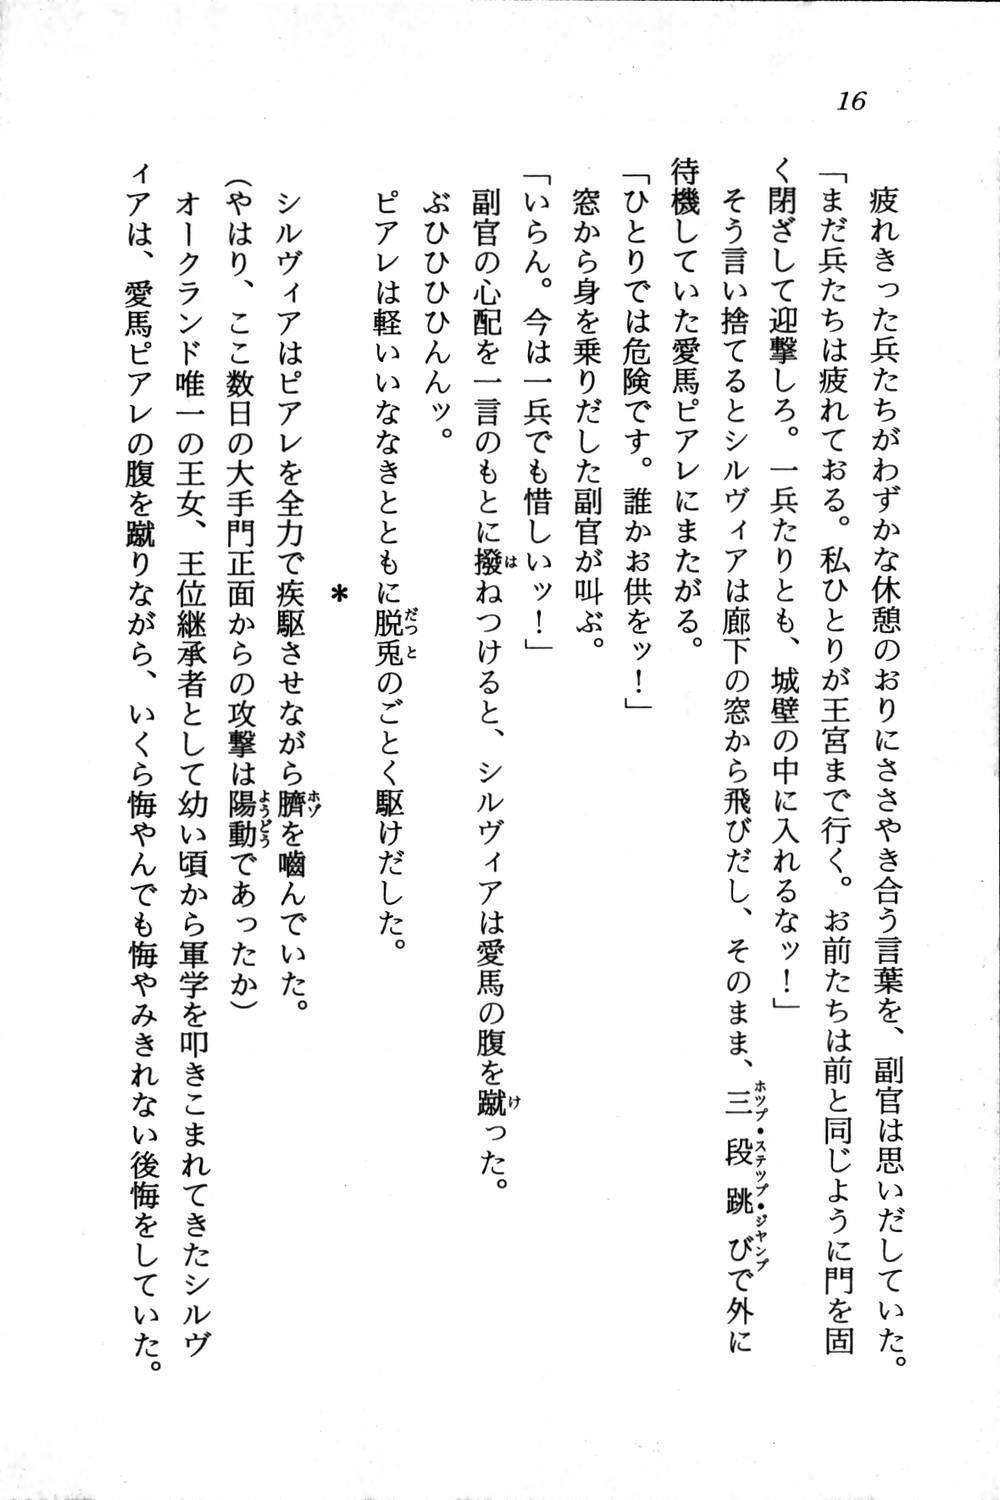 16
疲れきった兵たちがわずかな休憩のおりにささやき合う言葉を、副官は思いだしていた。
「まだ兵たちは疲れておる。私ひとりが王宮まで行く。お前たちは前と同じように門を固
く閉ざして迎撃しろ。一兵たりとも、城壁の中に入れるなッ！」
そう言い捨てるとシルヴィアは廊下の窓から飛びだし、そのまま、三段跳びで外に
ホップ・ステップ・ジャンプ
待機していた愛馬ピアレにまたがる。
「ひとりでは危険です。誰かお供をッ！」
窓から身を乗りだした副官が叫ぶ。
「いらん。今は一兵でも惜しいッ！」
副官の心配を一言のもとに撥ねつけると、シルヴィアは愛馬の腹を蹴った。
は
け
ぶひひひひんんッ。
ピアレは軽いいななきとともに脱兎のごとく駆けだした。
だっと
＊
シルヴィアはピアレを全力で疾駆させながら臍を嚙んでいた。
ホゾ
（やはり、ここ数日の大手門正面からの攻撃は陽動であったか）
ようどう
オークランド唯一の王女、王位継承者として幼い頃から軍学を叩きこまれてきたシルヴ
ィアは、愛馬ピアレの腹を蹴りながら、いくら悔やんでも悔やみきれない後悔をしていた。